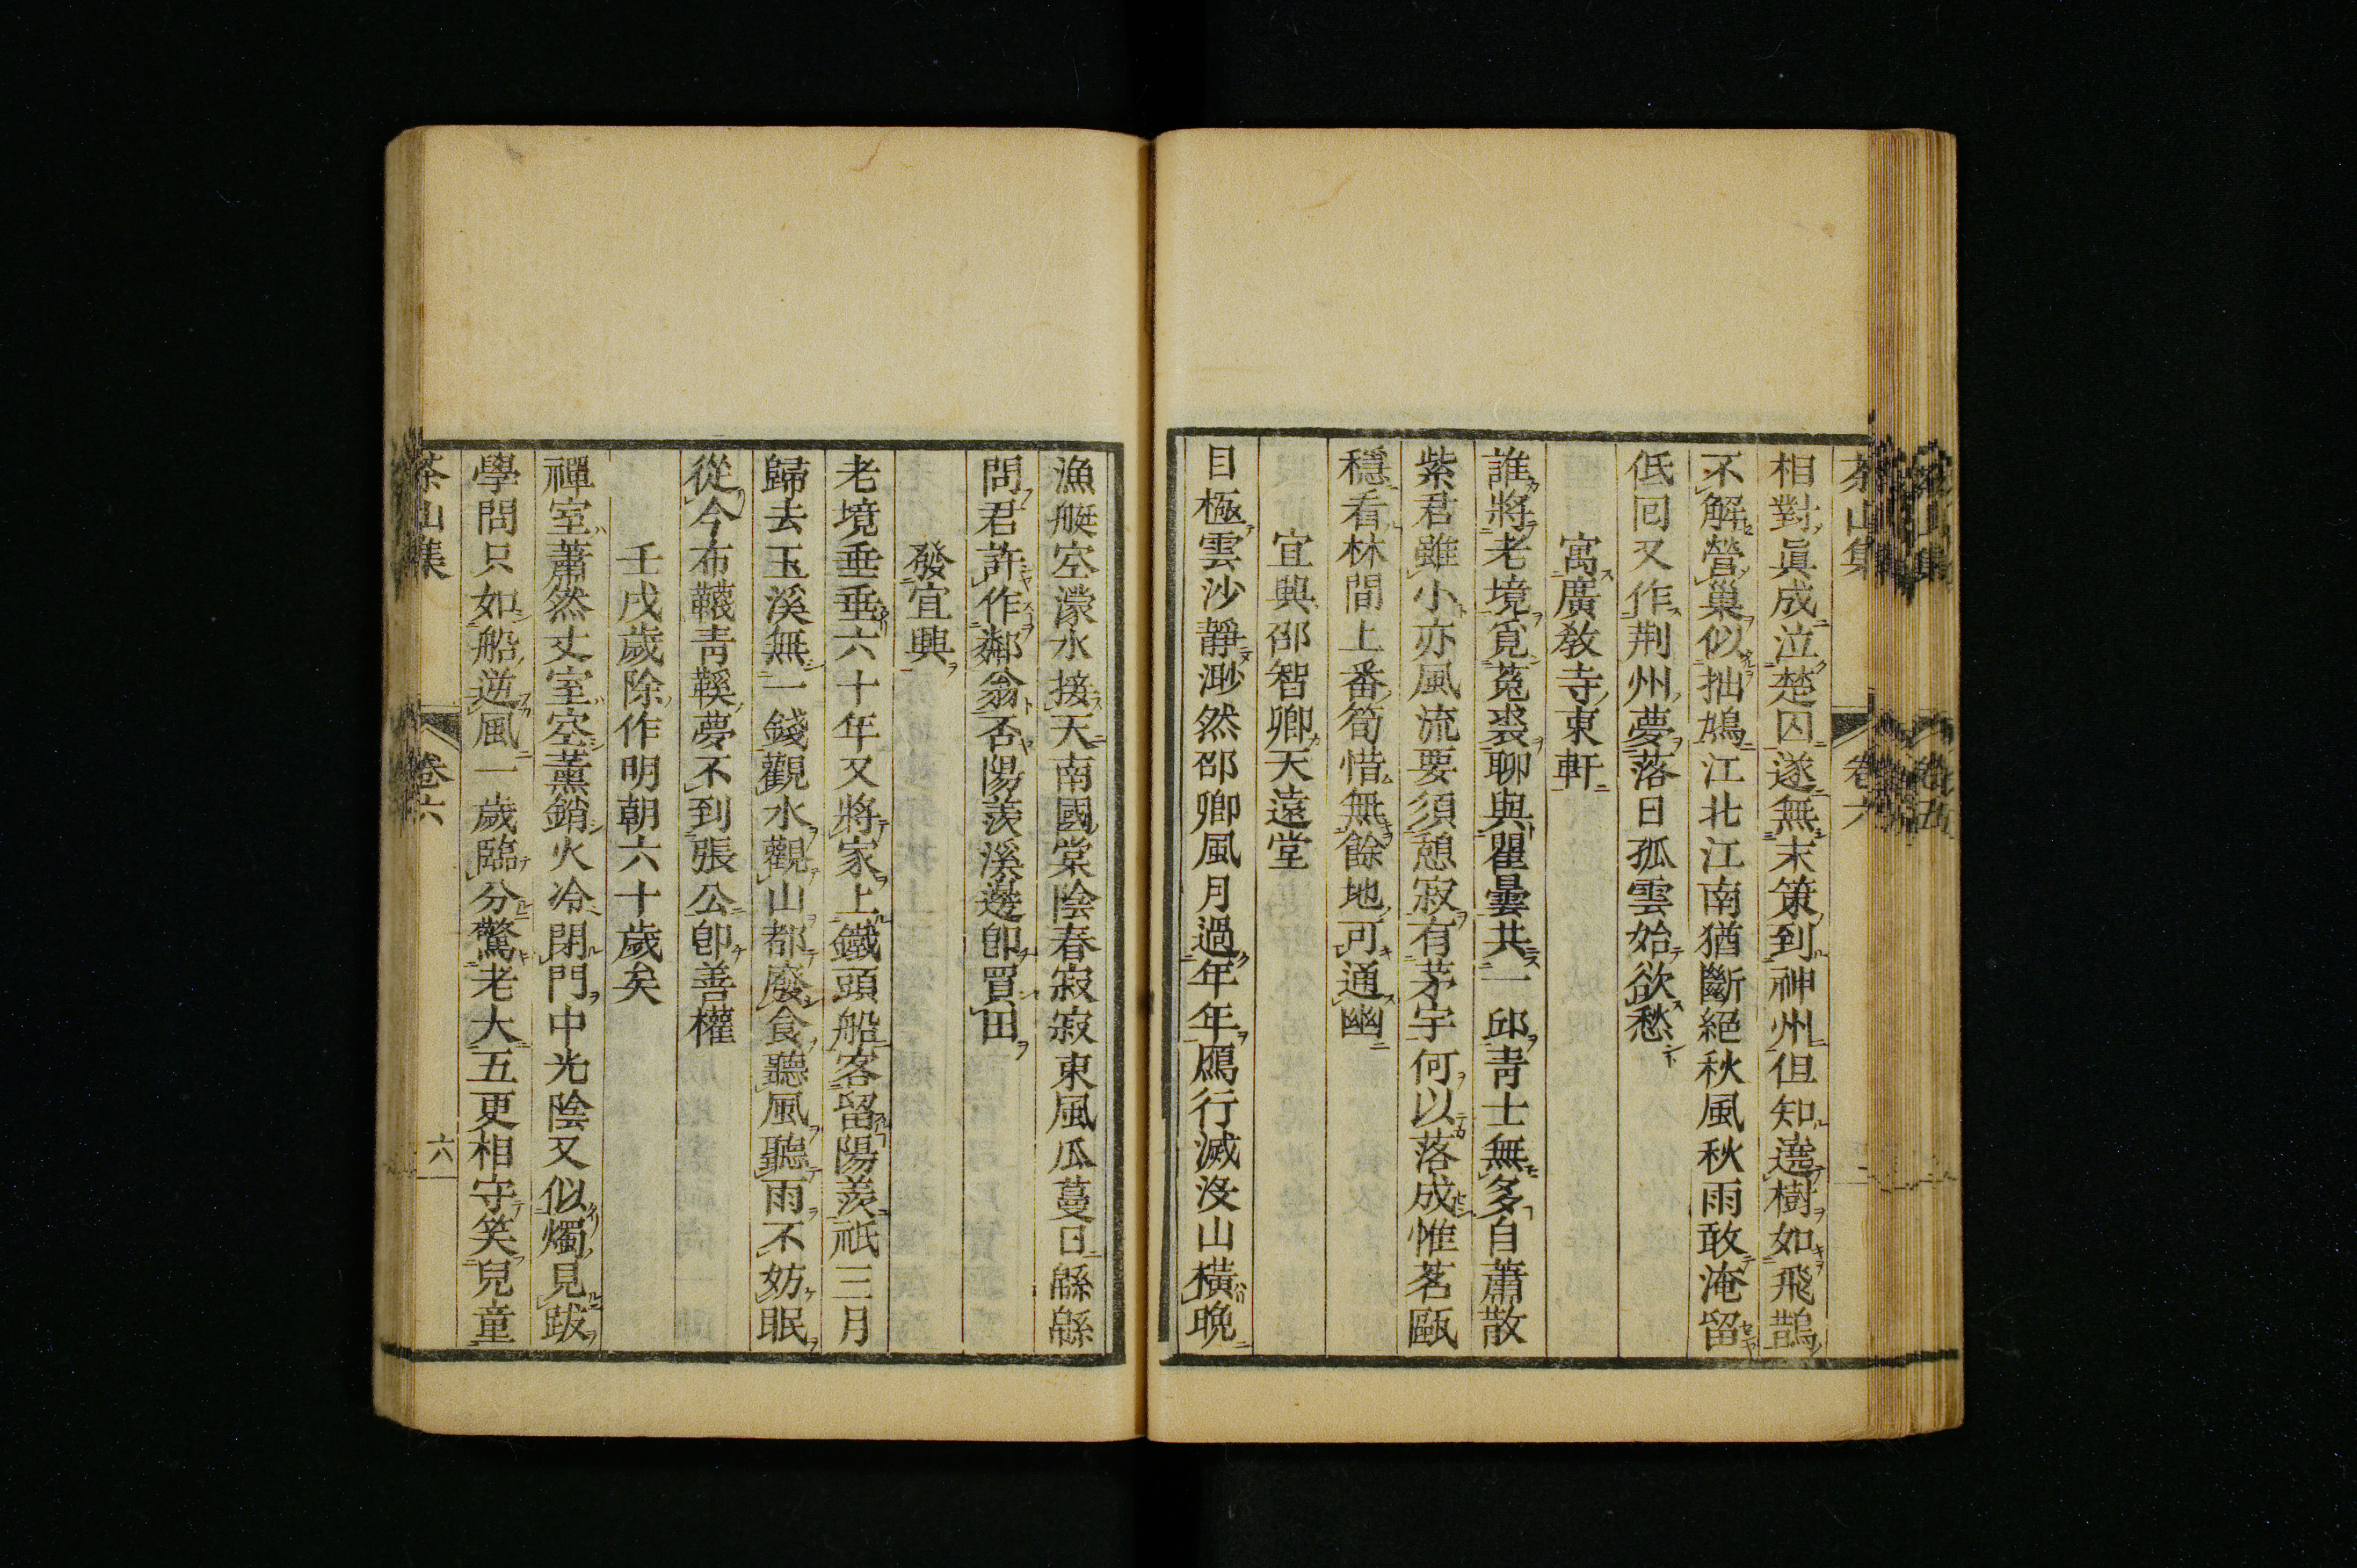 茶山集 卷六
相對眞成泣楚囚遂無末策到神州但知遶樹如飛鵲
不解營巢似拙鳩江北江南猶斷絕秋風秋雨敢淹留
低回又作荆州夢落日孤雲始欲愁
寓廣敎寺東軒
誰將老境覓菟裘聊與瞿曇共一邱靑士無多自蕭散
紫君雖小亦風流要須憩寂有茅宇何以落成惟茗甌
穩看林間上番筍惜無餘地可通幽
宜興邵智卿天遠堂
目極雲沙靜渺然邵卿風月過年年鴈行滅沒山橫晚
漁艇空濛水接天南國棠陰春寂寂東風瓜蔓日緜緜
問君許作鄰翁否陽羨溪邊卽買田
發宜興
老境垂垂六十年又將家上鐵頭船客留陽羨祇三月
歸去玉溪無一錢觀水觀山都廢食聽風聽雨不妨眠
從今布韈靑鞵夢不到張公卽善權
壬戌歲除作明朝六十歲矣
禪室蕭然丈室空薰銷火冷閉門中光陰又似燭見跋
學問只如船逆風一歲臨分驚老大五更相守笑兒童
茶山集 卷六 六